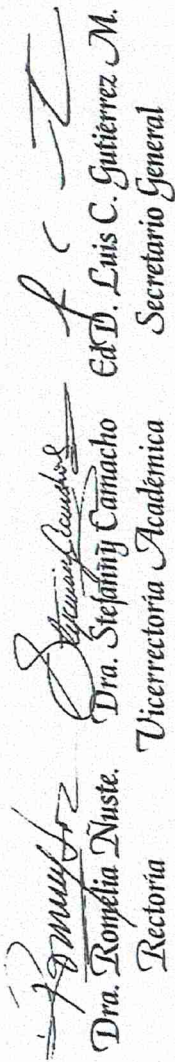 Dra. Romelia Ñuste.
Rectoría
Dra. Stefanny Camacho
Vicerrectoría Académica
Ed.D. Luis C. Gutiérrez M.
Secretario General